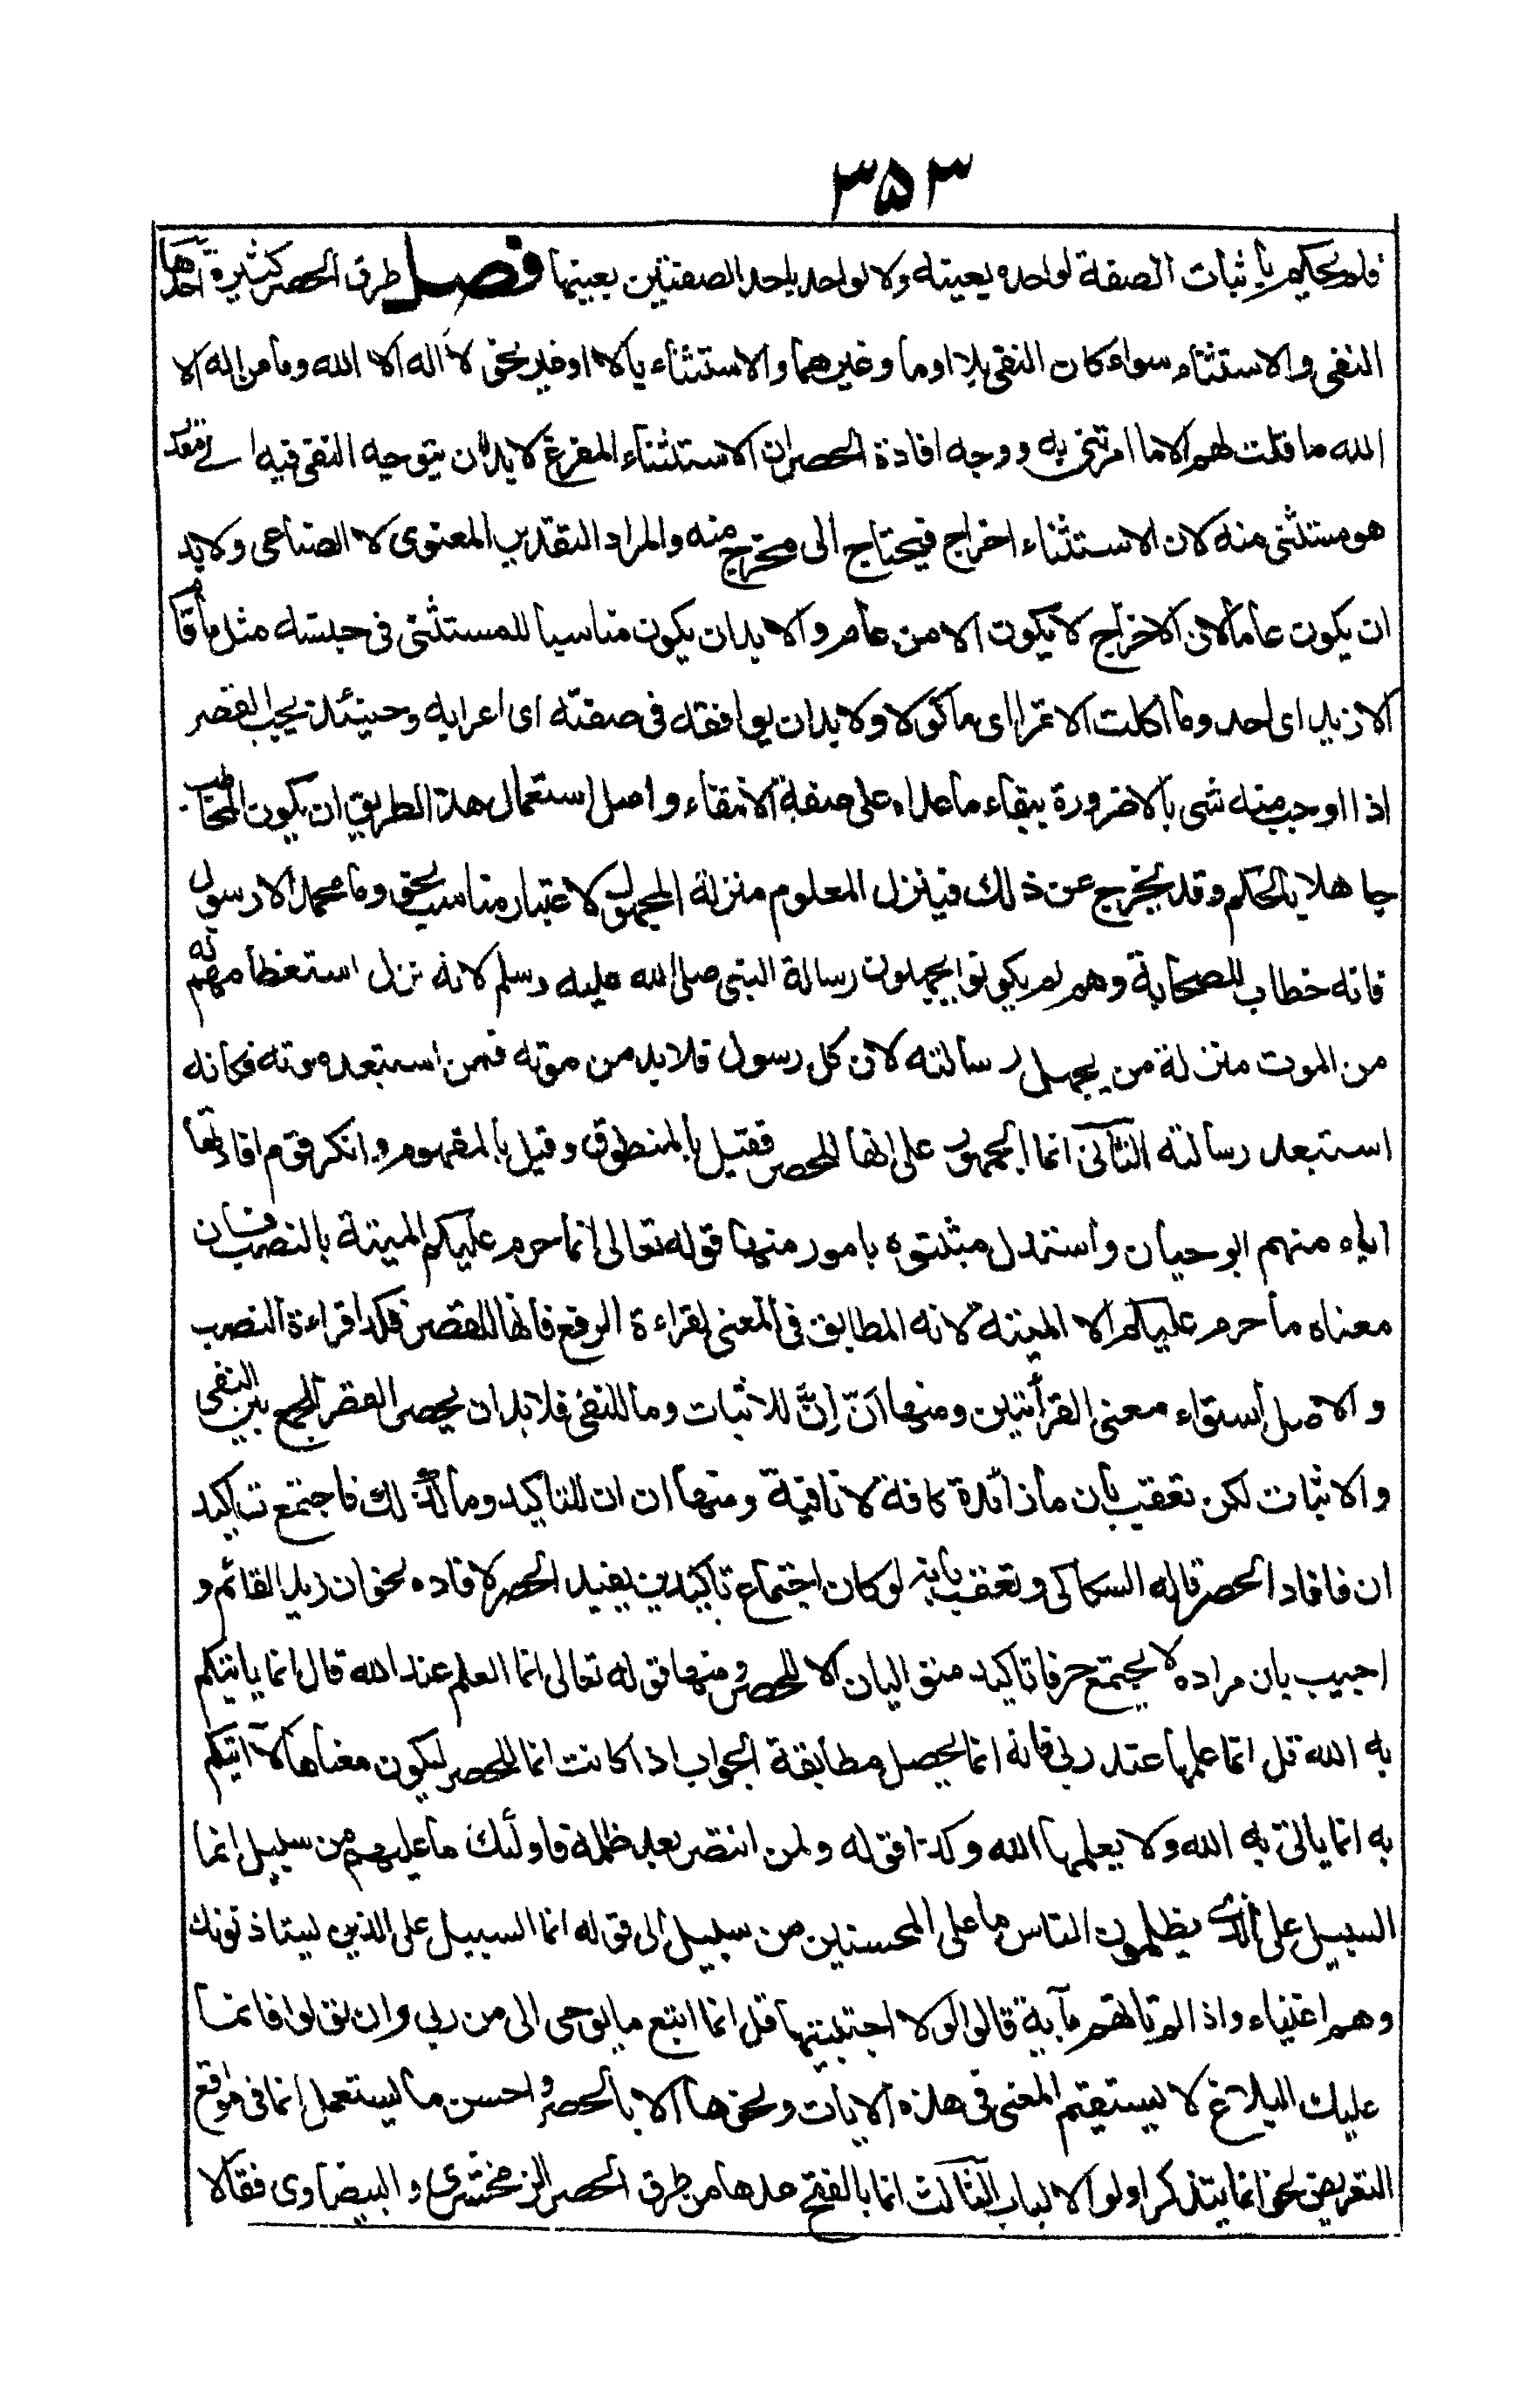 ۳۵۳
فلم يحكم باثبات الصفة لواحد بعينه ولا لواحد باحد الصفتين بعينها فصل طرق الحصر كثيرة احدها
النفي والاستثناء سواء كان النفي بلا او ما وغيرهما والاستثناء بالا او غير نحو لا اله الا الله وما من اله الا
الله ما قلت لهم الا ما امرتنى به ووجه افادة الحصر ان الاستثناء المفرغ لا بد ان يتوجه النفي فيه الى مقدر
هو مستثنى منه لان الاستثناء اخراج فيحتاج الى مخرج منه والمراد التقدير المعنوى لا الصناعى ولا بد
ان يكون عاما لان الاخراج لا يكون الا من عام ولا بد ان يكون مناسبا للمستثنى فى جنسه مثل ما قام
الا زيد اى احد وما اكلت الا تمرا اى ماكولا ولا بد ان يوافقه فى صفته اى اعرابه وحينئذ يجب القصر
اذا اوجب منه شى بالا ضرورة ببقاء ما عداه على صفة الانتفاء واصل استعمال هذا الطريق ان يكون المخاطب
جاهلا بالحكم وقد يخرج عن ذلك فينزل المعلوم منزلة المجهول لاعتبار مناسب نحو وما محمد الا رسول
فانه خطاب للصحابة وهم لم يكونوا يجهلون رسالة النبى صلى الله عليه وسلم لانه نزل استعظامهم له
من الموت منزلة من يجهل رسالته لان كل رسول فلا بد من موته فمن استبعد موته فكانه
استبعد رسالته الثانى انما الجمهور على انها للحصر فقيل بالمنطوق وقيل بالمفهوم وانكر قوم افادتها
اياه منهم ابو حيان واستدل مثبتوه بامور منها قوله تعالى انما حرم عليكم الميتة بالنصب فان
معناه ما حرم عليكم الا الميتة لانه المطابق فى المعنى لقراءة الرفع فانها للقصر فكذا قراءة النصب
والاصل استواء معنى القرأتين ومنها اَنّ اِنَّ للاثبات وما للنفى فلا بد ان يحصل القصر للجمع بين النفى
والاثبات لكن تعقب بان ما زائدة كافة لا نافية ومنها ان ان للتاكيد وما كذلك فاجتمع تاكيد
ان فافاد الحصر قاله السكاكى وتعقب بانه لو كان اجتماع تاكيدين يفيد الحصر لافاده نحو ان زيد القائم و
اجيب بان مراده لا يجتمع حرفا تاكيد متواليان الا للحصر ومنها قوله تعالى انما العلم عند الله قال انما ياتيكم
به الله قل انما علمها عند ربى فانه انما يحصل مطابقة الجواب اذا كانت انما للحصر ليكون معناها لا آتيكم
به انما ياتى به الله ولا يعلمها الله وكذا قوله ولمن انتصر بعد ظلمه فاولئك ما عليهم من سبيل انما
السبيل على الذى يظلمون الناس ما على المحسنين من سبيل الى قوله انما السبيل على الذين يستاذنونك
وهم اغنياء واذا لم تاتهم بآية قالوا لولا اجتبيتها قل انما اتبع ما يوحى الى من ربى وان تولوا فانما
عليك البلاغ لا يستقيم المعنى فى هذه الايات ونحوها الا بالحصر واحسن ما يستعمل انما فى مواقع
التعريض نحو انما يتذكر اولو الالباب الثالث انما بالفتح عدها من طرق الحصر الزمخشرى والبيضاوى فقالا